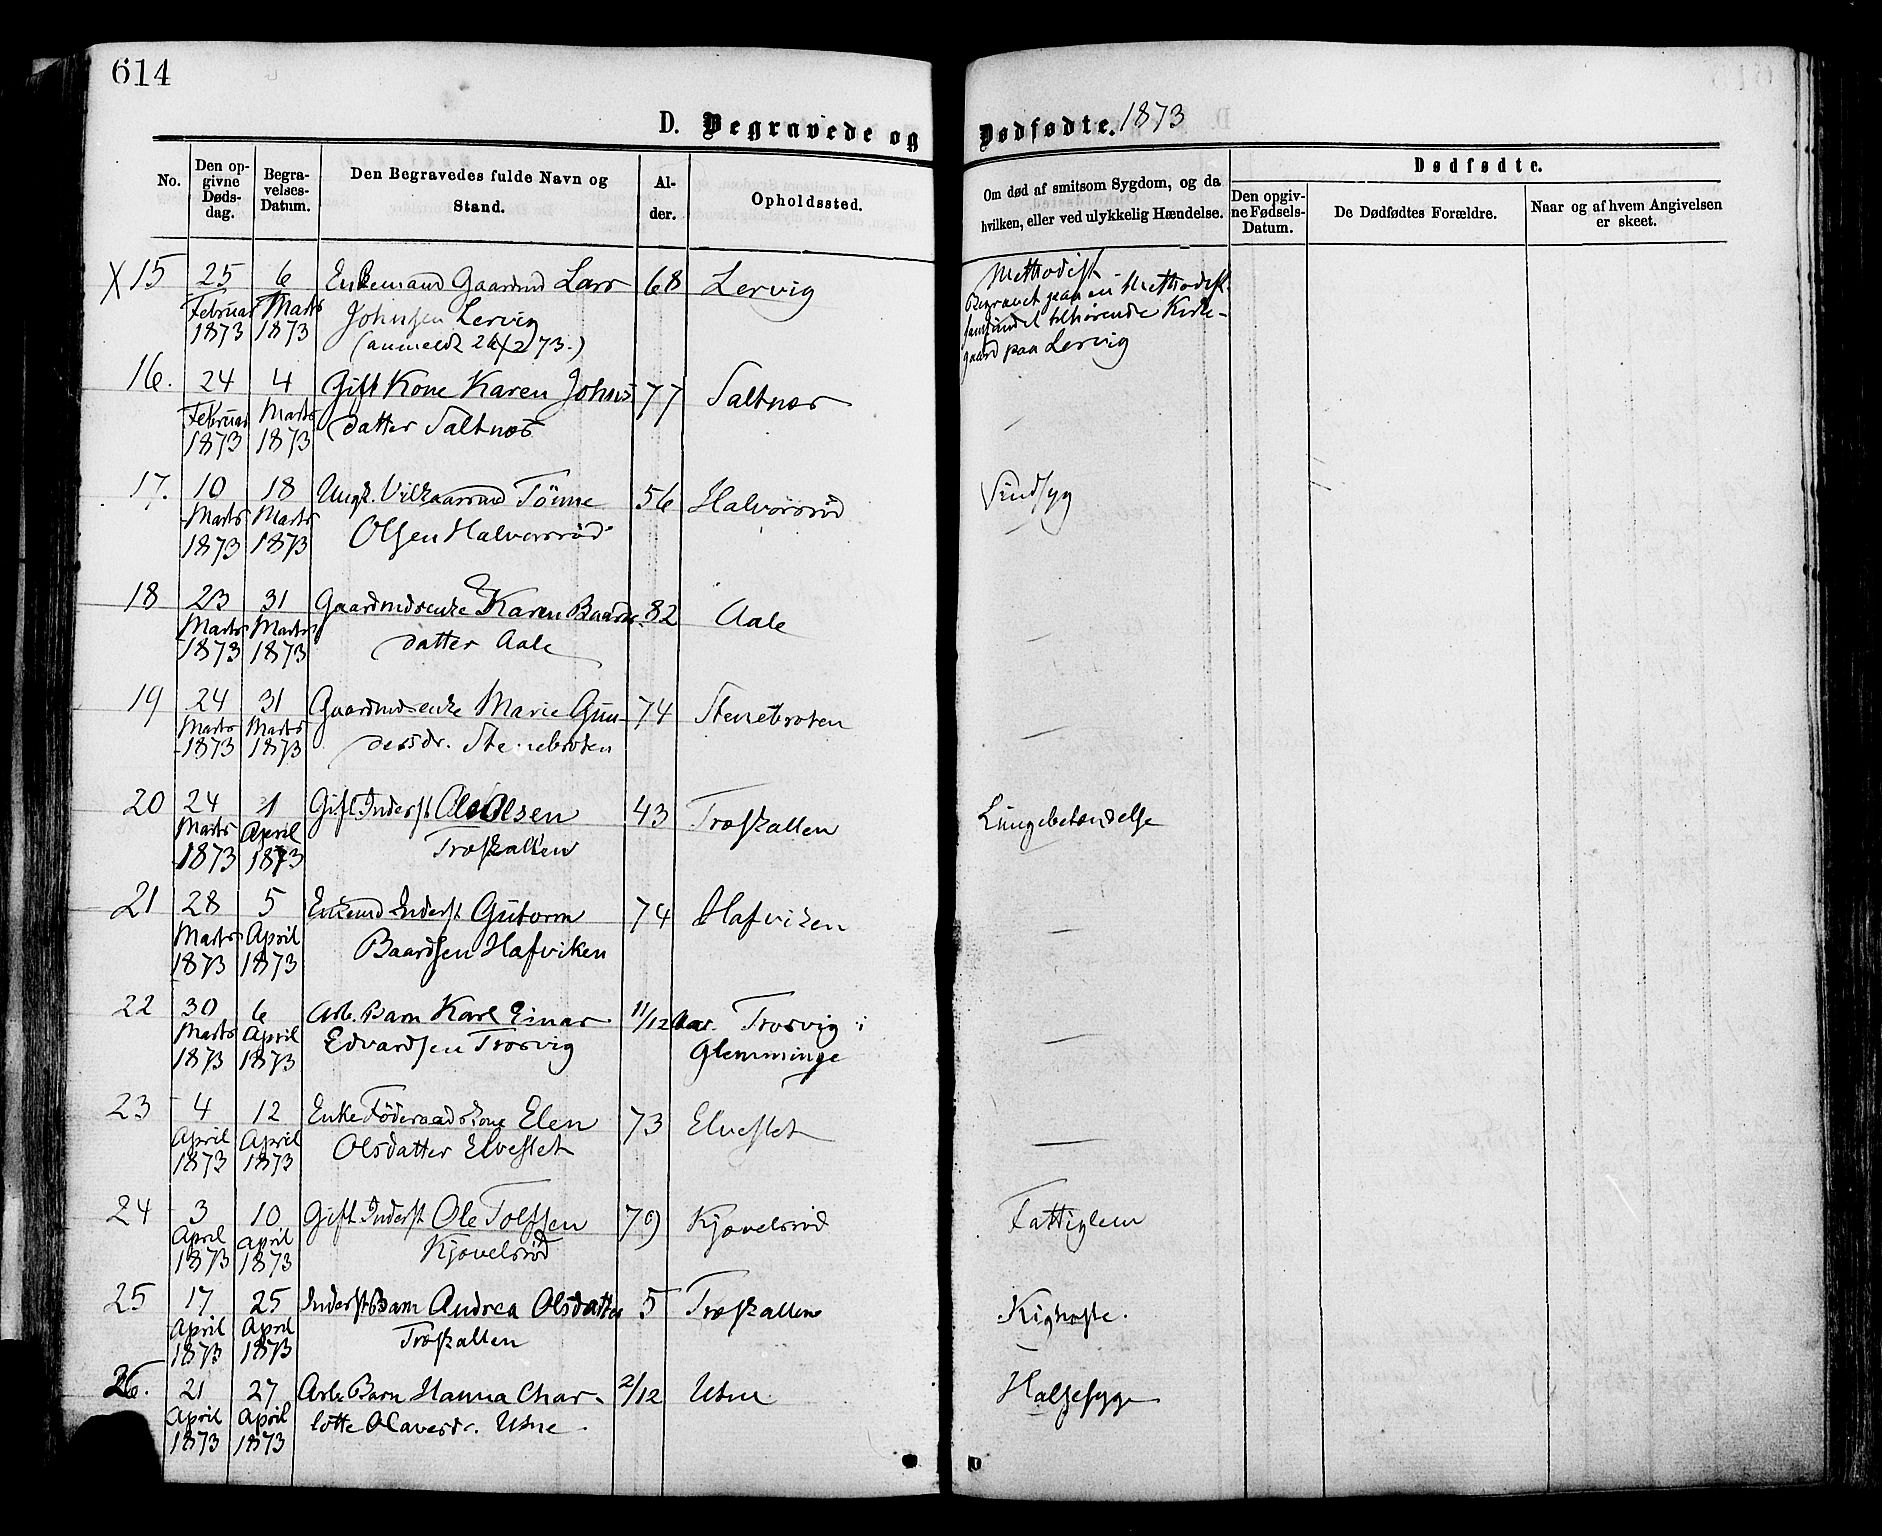 614
D. Begravede og Dødfødte. 1873
No.
Den opgivne Dødsdag.
Begravelses-Datum.
Den Begravedes fulde Navn og Stand.
Alder.
Opholdssted.
Om død af smitsom Sygdom, og da hvilken, eller ved ulykkelig Hændelse.
Dødfødte.
Den opgivne Fødsels-Datum.
De Dødfødtes Forældre.
Naar og af hvem Angivelsen er skeet.
X 15 25 6 Enkemand Gaardmd Lars 68 Lervig Methodist
Februar Marts Johnsen Lervig Begravet paa en Methodist
1873 1873 (anmeldt 26/2 73.) samfundet tilhørende Kirke-
gaard paa Lervig
16. 24 4 Gift Kone Karen Johns 77 Saltnæs
Februar Marts datter Saltnæs
1873 1873
17. 10 18 Ungk. Vilkaarsmd Tönne 56 Halvorsrød Sindsyg
Marts Marts Olsen Halvorsrød
1873 1873
18 23 31 Gaardmdsenke Karen Baards 82 Aale
Marts Marts datter Aale
1873 1873
19 24 31 Gaardmdsenke Marie Gun- 74 Stenebroten
Marts Marts dersdr. Stenebroten
1873 1873
20 24 1 Gift Inderst Ole Olsen 43 Træskallen Lungebetændelse
Marts April Træskallen
1873 1873
21 28 5 Enkemd Inderst Gutorm 74 Hafviken
Marts April Baardsen Hafviken
1873 1873
22 30 6 Arb. Barn Karl Einar 11/12 Aar. Trosvig i
Marts April Edvardsen Trosvig Glemminge
1873 1873
23 4 12 Enke Föderaadskone Elen 73 Elveslet
April April Olsdatter Elveslet
1873 1873
24 3 10 Gift Inderst Ole Tolfsen Kjøvelsrød Fattiglem
April April Kjøvelsrød
1873 1873
25 17 25 Inderst Barn Andrea Olsdatter 5 Træskallen Kighoste.
April April Træskallen
1873 1873
26. 21 27 Arb. Barn Hanna Char- 2/12 Utne Halssyge
April April lotte Olavesdr. Utne
1873 1873